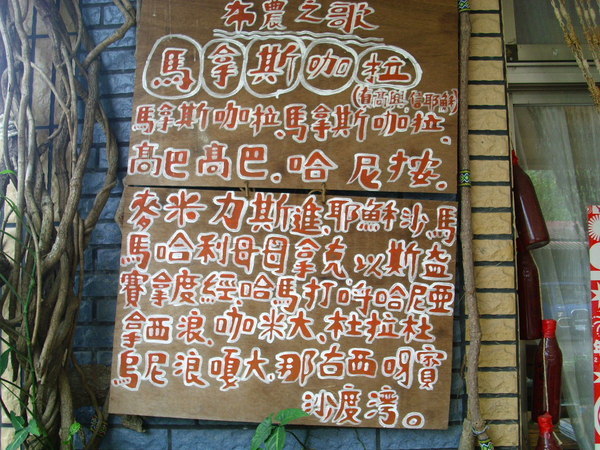 布農之歌
馬拿斯咖拉
(有高興信耶穌)
馬拿斯咖拉、馬拿斯咖拉、
高巴高巴、哈尼按、
麥米力斯進、耶穌沙馬
馬哈利母母拿克、以斯盋
賽拿度經哈馬打呼哈尼亞
拿西浪、咖米大、杜拉杜
烏尼浪嘎大、那古西呀賓
沙度灣。